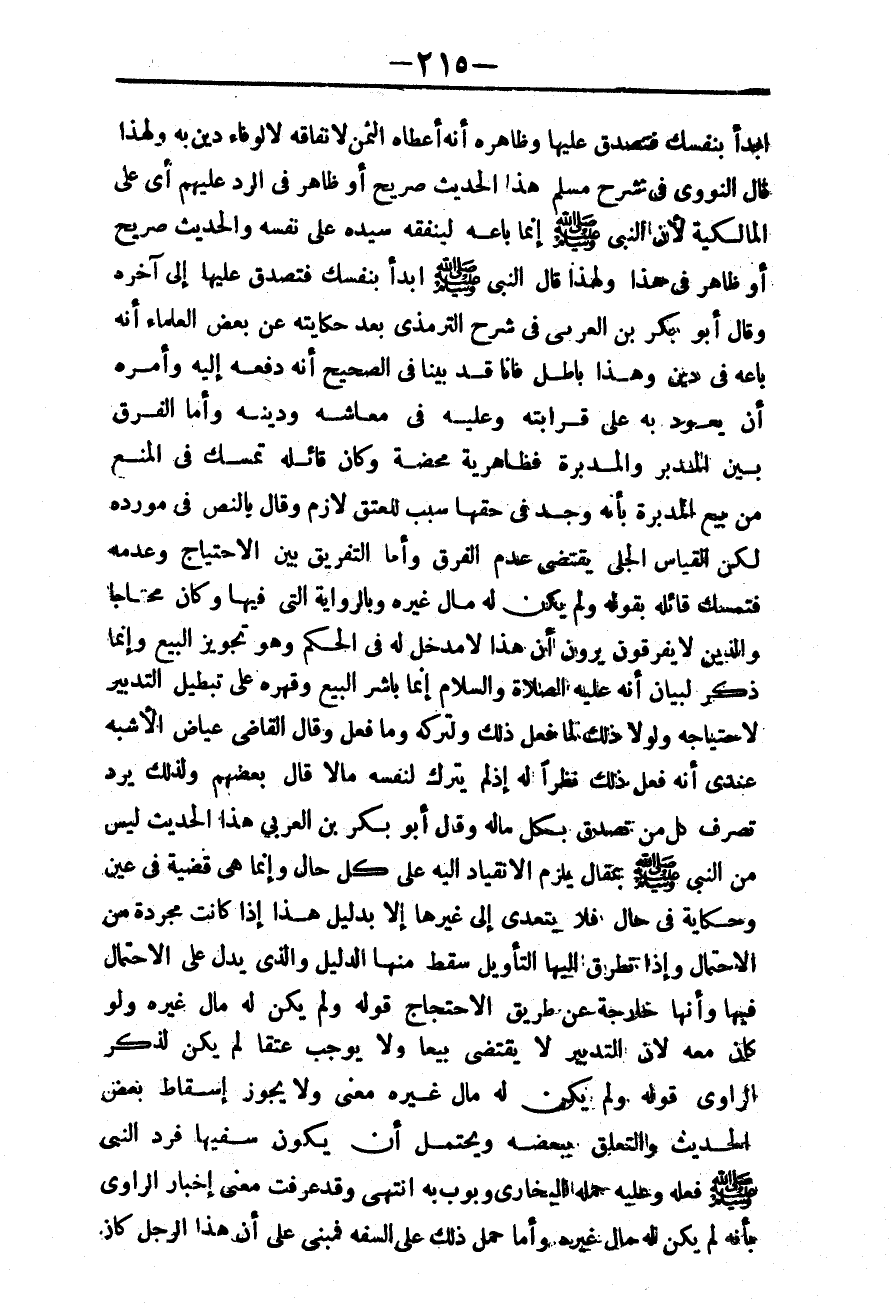 —٢١٥—
ابدأ بنفسك فتصدق عليها وظاهره أنه أعطاه الثمن لانفاقه لا لوفاء دين به ولهذا
قال النووى فى شرح مسلم هذا الحديث صريح أو ظاهر فى الرد عليهم أى على
المالكية لأن النبى ﷺ إنما باعه لينفقه سيده على نفسه والحديث صريح
أو ظاهر فى هذا ولهذا قال النبى ﷺ ابدأ بنفسك فتصدق عليها إلى آخره
وقال أبو بكر بن العربى فى شرح الترمذى بعد حكايته عن بعض العلماء أنه
باعه فى دين وهذا باطل فانا قد بينا فى الصحيح أنه دفعه إليه وأمره
أن يعود به على قرابته وعليه فى معاشه ودينه وأما الفرق
بين المدبر والمدبرة فظاهرية محضة وكان قائله تمسك فى المنع
من بيع المدبرة بأنه وجد فى حقها سبب للعتق لازم وقال بالنص فى مورده
لكن القياس الجلى يقتضى عدم الفرق وأما التفريق بين الاحتياج وعدمه
فتمسك قائله بقوله ولم يكن له مال غيره وبالرواية التى فيها وكان محتاجا
والذين لا يفرقون يرون أن هذا لا مدخل له فى الحكم وهو تجويز البيع وإنما
ذكر لبيان أنه عليه الصلاة والسلام إنما باشر البيع وقهره على تبطيل التدبير
لاحتياجه ولولا ذلك لما فعل ذلك ولتركه وما فعل وقال القاضى عياض الأشبه
عندى أنه فعل ذلك نظراً له إذ لم يترك لنفسه مالا قال بعضهم ولذلك يرد
تصرف كل من تصدق بكل ماله وقال أبو بكر بن العربي هذا الحديث ليس
من النبى ﷺ بمقال يلزم الانقياد اليه على كل حال وإنما هى قضية فى عين
وحكاية فى حال فلا يتعدى إلى غيرها إلا بدليل هذا إذا كانت مجردة من
الاحتمال وإذا تطرق اليها التأويل سقط منها الدليل والذى يدل على الاحتمال
فيها وأنها خارجة عن طريق الاحتجاج قوله ولم يكن له مال غيره ولو
كان معه لان التدبير لا يقتضى بيعا ولا يوجب عتقا لم يكن لذكر
الراوى قوله ولم يكن له مال غيره معنى ولا يجوز إسقاط بعض
الحديث والتعلق ببعضه ويحتمل أن يكون سفيها فرد النبى
ﷺ فعله وعليه حمله البخارى وبوب به انتهى وقد عرفت معنى إخبار الراوى
بأنه لم يكن له مال غيره وأما حمل ذلك على السفه فمبنى على أن هذا الرجل كان